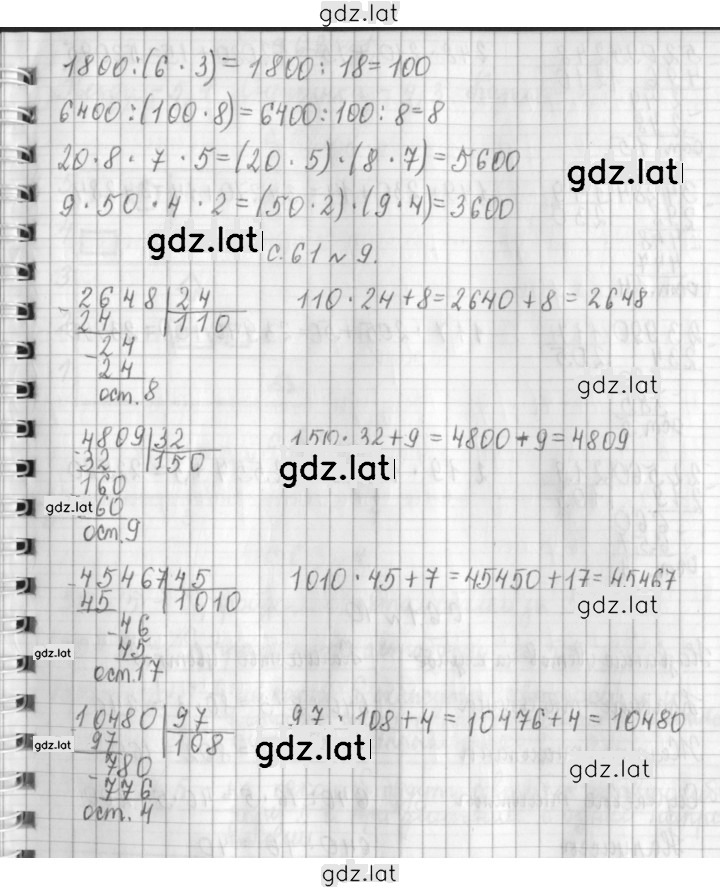 gdz.lat
1800:(6·3)=1800:18=100
6400:(100·8)=6400:100:8=8
20·8·7·5=(20·5)·(8·7)=5600
gdz.lat
9·50·4·2=(50·2)·(9·4)=3600
gdz.lat
с.61 № 9.
2648 | 24 110·24+8=2640+8=2648
24 110
- 24
24
gdz.lat
ост. 8
4809 | 32 150·32+9=4800+9=4809
32 150
gdz.lat
160
gdz.lat 160
ост. 9
-45467 | 45 1010·45+7=45450+17=45467
45 1010
gdz.lat
-46
gdz.lat 45
ост. 17
10480 | 97 97·108+4=10476+4=10480
gdz.lat 97 108
gdz.lat
-780
gdz.lat
776
ост. 4
gdz.lat